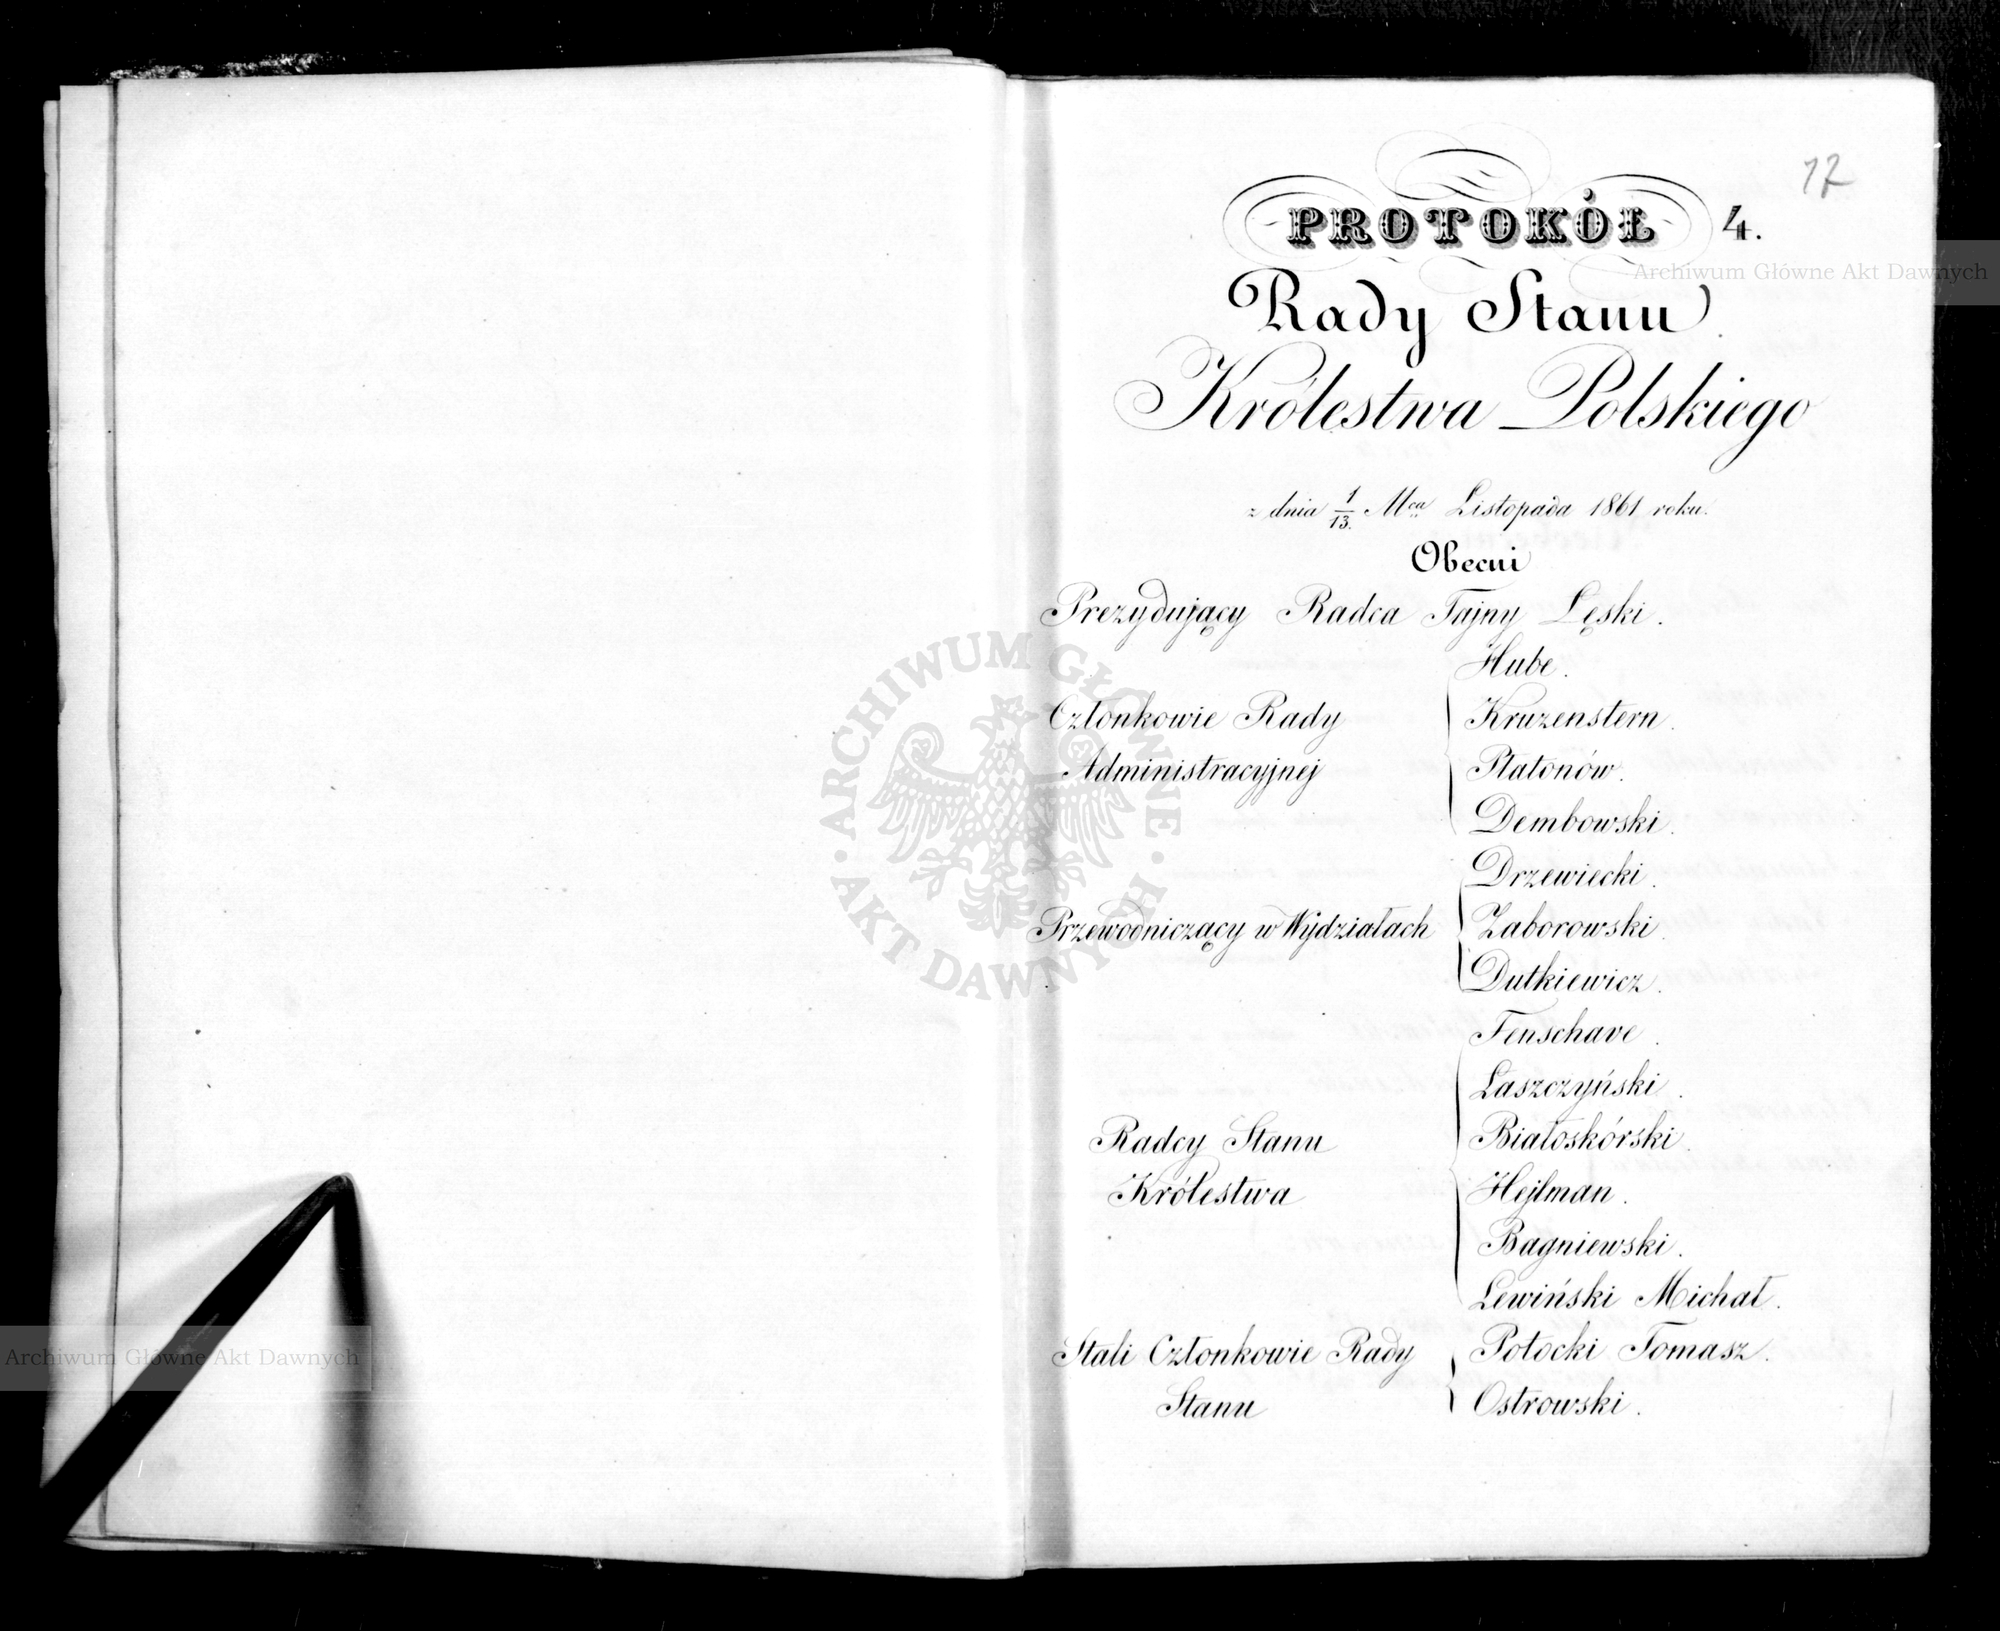 12
PROTOKÓŁ 4.
Rady Stanu
Królestwa Polskiego
z dnia 1/13. Mca Listopada 1861 roku.
Obecni
Prezydujący Radca Tajny Łęski.
Hube.
Członkowie Rady
Kruzenstern.
Administracyjnej
Płatonów.
Dembowski.
Drzewiecki.
Przewodniczący w Wydziałach
Zaborowski.
Dutkiewicz.
Fenschave.
Łaszczyński.
Radcy Stanu
Białoskórski.
Królestwa
Hejlman.
Bagniewski.
Lewiński Michał.
Stali Członkowie Rady
Potocki Tomasz.
Stanu
Ostrowski.
Archiwum Główne Akt Dawnych
ARCHIWUM GŁÓWNE AKT DAWNYCH
Archiwum Główne Akt Dawnych